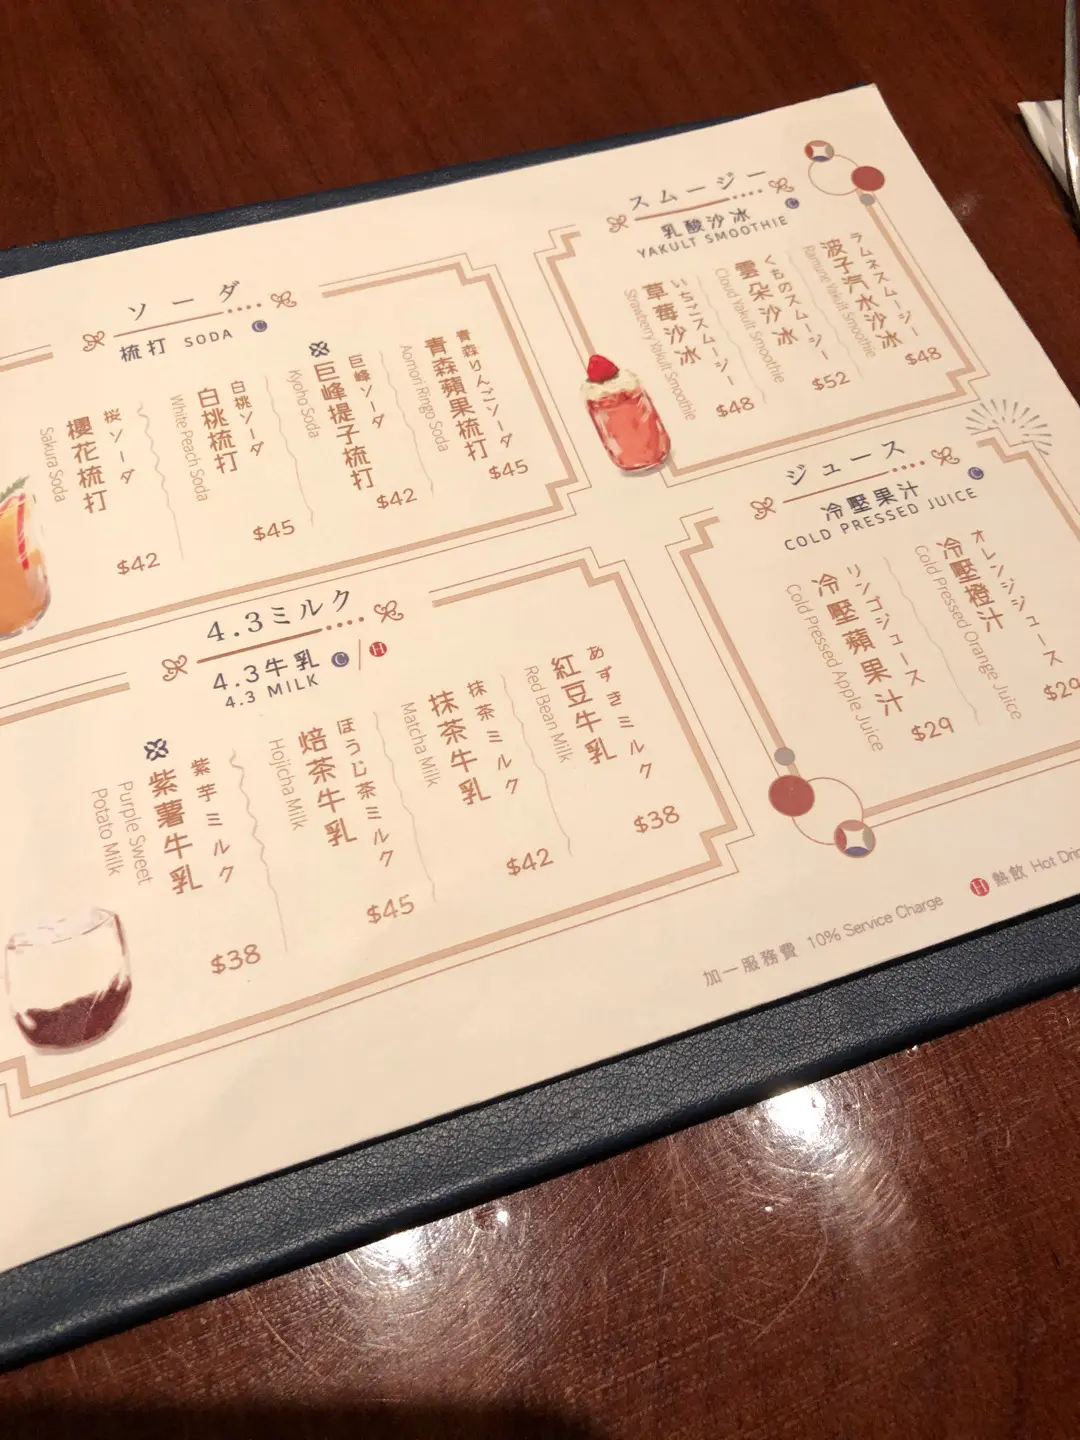 ソーダ
梳打 SODA
C
桜ソーダ
櫻花梳打
Sakura Soda
$42
白桃ソーダ
白桃梳打
White Peach Soda
$45
巨峰ソーダ
巨峰提子梳打
Kyoho Soda
$42
青森りんごソーダ
青森蘋果梳打
Aomori Ringo Soda
$45
スムージー
乳酸沙冰
C
YAKULT SMOOTHIE
いちごスムージー
草莓沙冰
Strawberry Yakult Smoothie
$48
くものスムージー
雲朵沙冰
Cloud Yakult Smoothie
$52
ラムネスムージー
波子汽水沙冰
Ramune Yakult Smoothie
$48
4.3ミルク
4.3牛乳
C | H
4.3 MILK
紫芋ミルク
紫薯牛乳
Purple Sweet
Potato Milk
$38
ほうじ茶ミルク
焙茶牛乳
Hojicha Milk
$45
抹茶ミルク
抹茶牛乳
Matcha Milk
$42
あずきミルク
紅豆牛乳
Red Bean Milk
$38
ジュース
冷壓果汁
C
COLD PRESSED JUICE
リンゴジュース
冷壓蘋果汁
Cold Pressed Apple Juice
$29
オレンジジュース
冷壓橙汁
Cold Pressed Orange Juice
$29
加一服務費 10% Service Charge
H 熱飲 Hot Drin